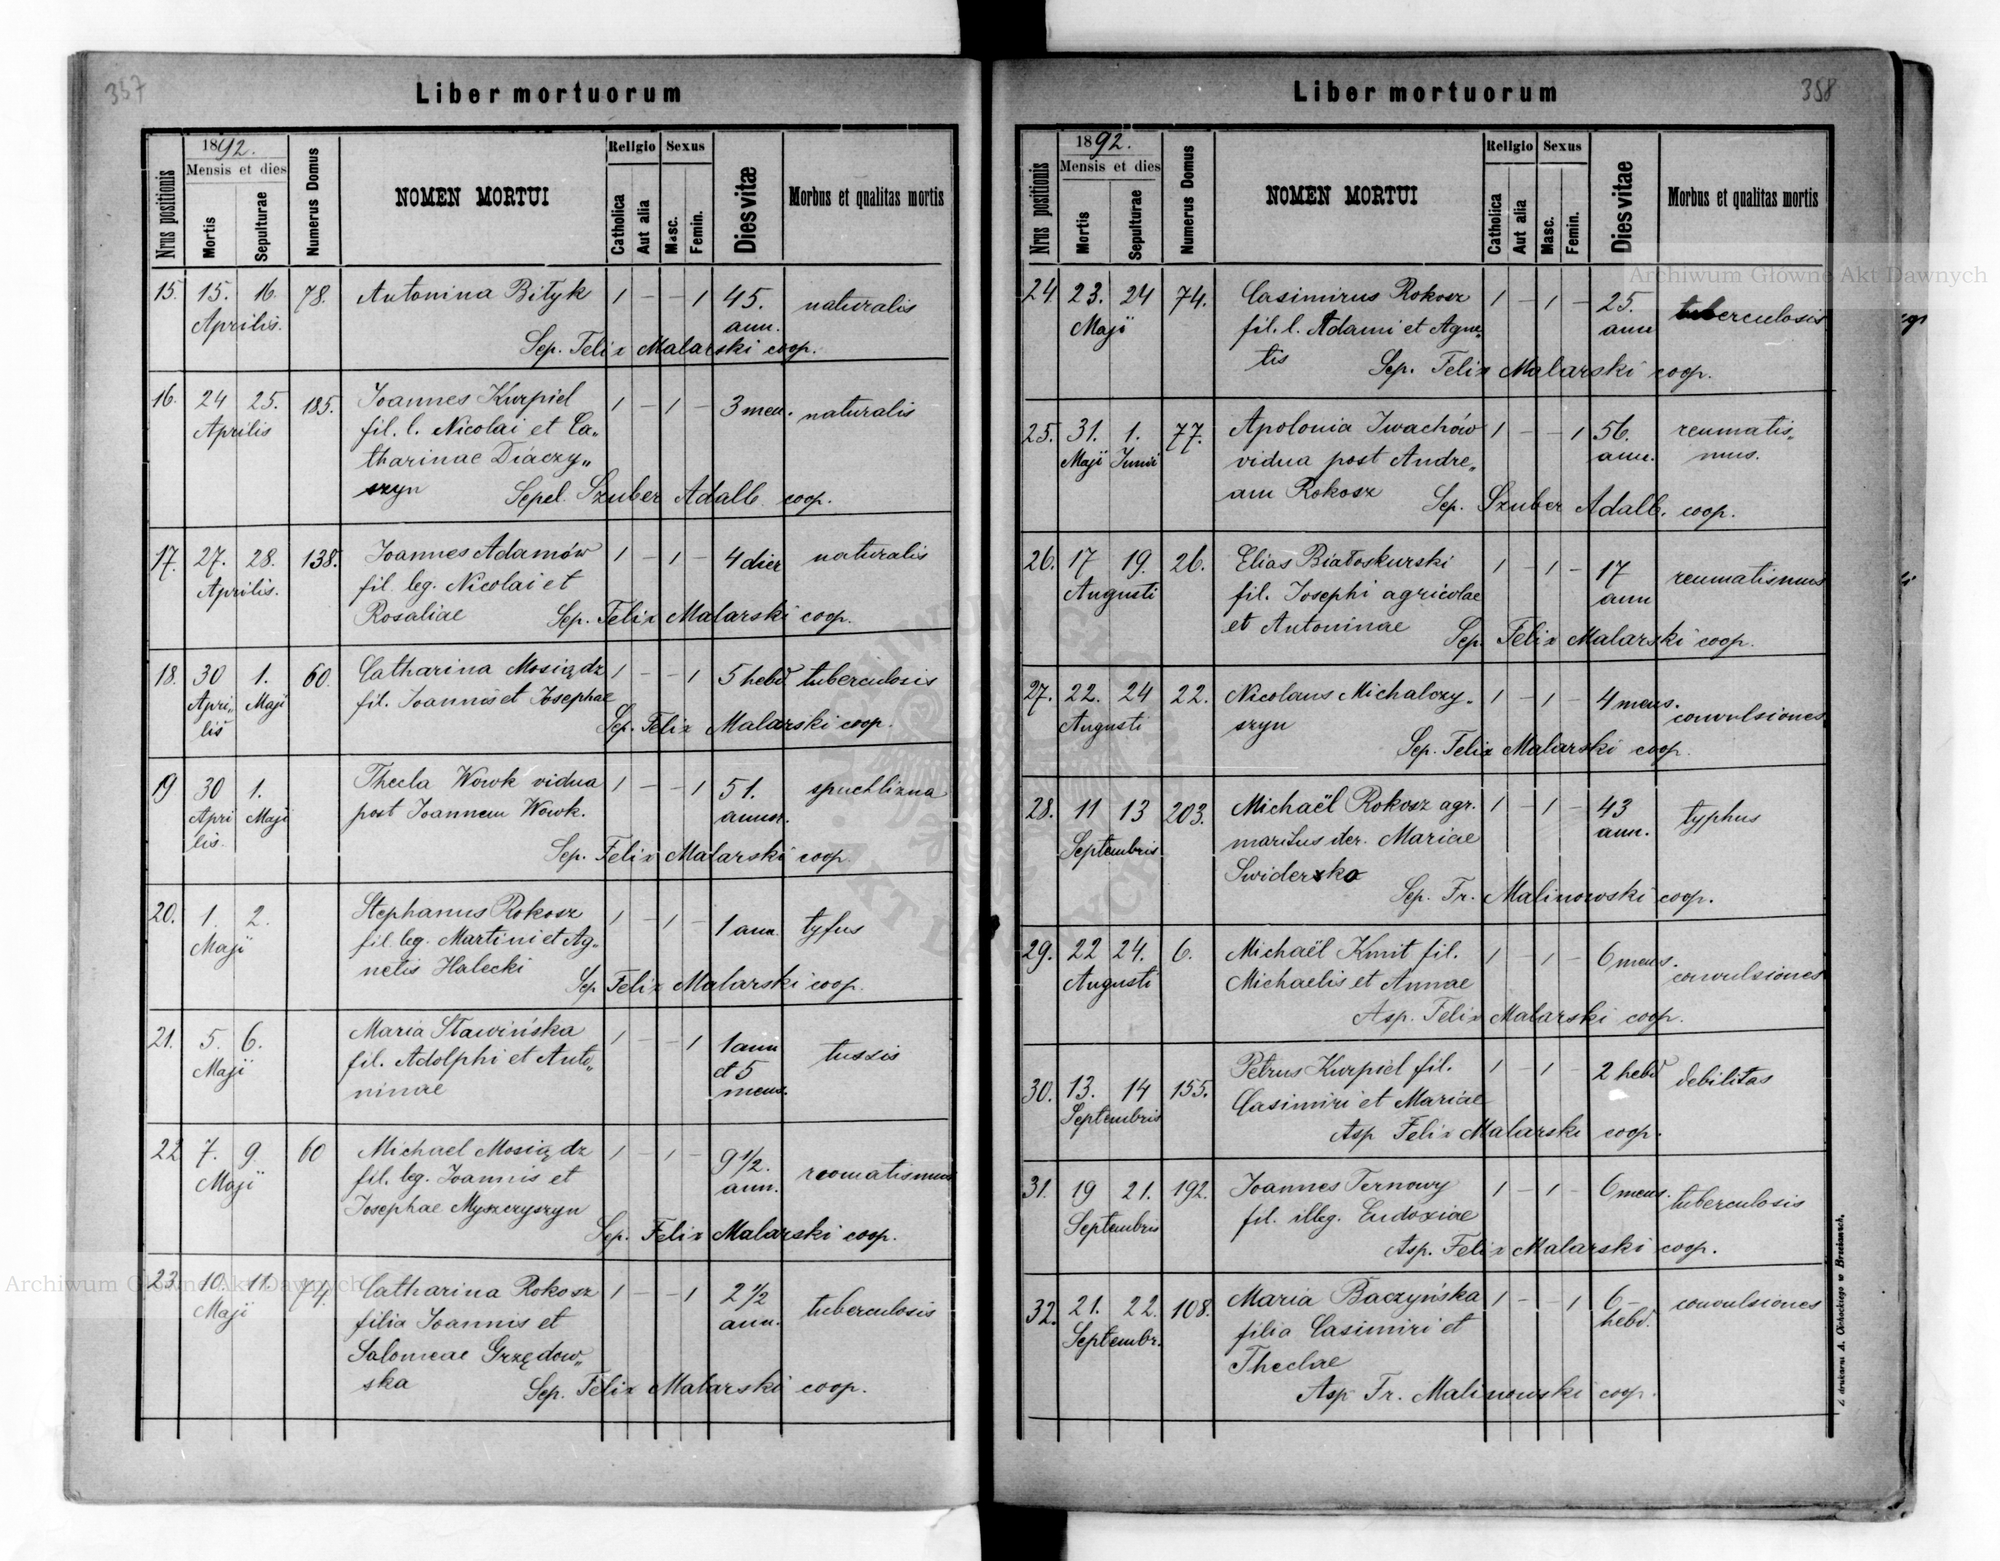 357
Liber mortuorum
Nrus positionis
1892.
Mensis et dies
Mortis
Sepulturae
Numerus Domus
NOMEN MORTUI
Religio
Catholica
Aut alia
Sexus
Masc.
Femin.
Dies vitæ
Morbus et qualitas mortis
15. 15. 16. 78. Antonina Bityk 1 – – 1 45. naturalis
Aprilis. ann.
Sep. Felix Malarski coop.
16. 24 25. 185. Joannes Kurpiel 1 – 1 – 3 men. naturalis
Aprilis fil. l. Nicolai et Ca„
tharinae Diaczy„
szyn Sepel. Szuber Adalb. coop.
17. 27. 28. 138. Joannes Adamów 1 – 1 – 4 dier naturalis
Aprilis. fil leg. Nicolai et
Rosaliae Sep. Felix Malarski coop.
18. 30 1. 60. Catharina Mosiądz 1 – – 1 5 hebd. tuberculosis
Apri„ Maji fil. Joannis et Josephae
lis Sep. Felix Malarski coop.
19 30 1. Thecla Wowk vidua 1 – – 1 51. spuchlizna
Apri Maji post Joannem Wowk. annor.
lis. Sep. Felix Malarski coop.
20. 1. 2. Stephanus Rokosz 1 – 1 – 1 ann. tyfus
Maji fil leg. Martini et Ag„
netis Halecki Sep Felix Malarski coop.
21. 5. 6. Maria Stawińska 1 – – 1 1 ann tussis
Maji fil. Adolphi et Anto„ et 5
ninae mens.
22 7. 9. 60 Michael Mosiądz 1 – 1 – 9 1/2. reomatismus
Maji fil. leg. Joannis et ann.
Josephae Myszczyszyn
Sep. Felix Malarski coop.
23. 10. 11. 74. Catharina Rokosz 1 – – 1 2 1/2 tuberculosis
Maji filia Joannis et ann.
Salomeae Grzędow„
ska Sep. Felix Malarski coop.
Archiwum Główne Akt Dawnych
358
Liber mortuorum
Nrus positionis
1892.
Mensis et dies
Mortis
Sepulturae
Numerus Domus
NOMEN MORTUI
Religio
Catholica
Aut alia
Sexus
Masc.
Femin.
Dies vitae
Morbus et qualitas mortis
Archiwum Główne Akt Dawnych
24. 23. 24 74. Casimirus Rokosz 1 – 1 – 25. tuberculosis
Maji fil. l. Adami et Agne„ ann
tis Sep. Felix Malarski coop.
25. 31. 1. 77. Apolonia Iwachów 1 – – 1 56. reumatis„
Maji Junii vidua post Andre„ ann. mus.
am Rokosz Sep. Szuber Adalb. coop.
26. 17 19. 26. Elias Białoskurski 1 – 1 – 17 reumatismus
Augusti fil. Josephi agricolae ann
et Antoninae Sep. Felix Malarski coop.
27. 22. 24 22. Nicolaus Michalczy„ 1 – 1 – 4 mens. convulsiones
Augusti szyn
Sep. Felix Malarski coop.
28. 11 13 203. Michaël Rokosz agr. 1 – 1 – 43 typhus
Septembris maritus der. Mariae ann.
Swiderzko
Sep. Fr. Malinowski coop.
29. 22 24. 6. Michaël Kmit fil. 1 – 1 – 6 mens. convulsiones
Augusti Michaelis et Annae
Asp. Felix Malarski coop.
30. 13. 14 155. Petrus Kurpiel fil. 1 – 1 – 2 hebd debilitas
Septembris Casimiri et Mariae
Asp Felix Malarski coop.
31. 19 21. 192. Joannes Ternowy 1 – 1 – 6 mens. tuberculosis
Septembris fil. illeg. Eudoxiae
Asp. Felix Malarski coop.
32. 21. 22. 108. Maria Baczyńska 1 – – 1 6 – convulsiones
Septembr. filia Casimiri et hebd.
Theclae
Asp Fr. Malinowski coop.
Z drukarni A. Cichockiego w Brzeżanach.